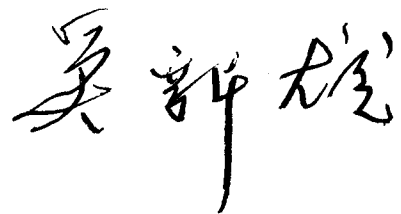 吴新雄